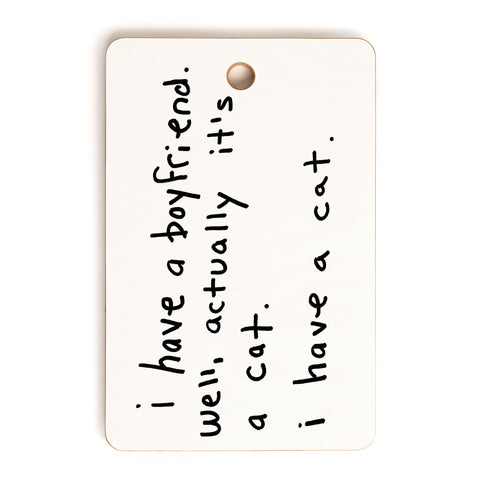 i have a boyfriend.
well, actually it's
a cat.
i have a cat.